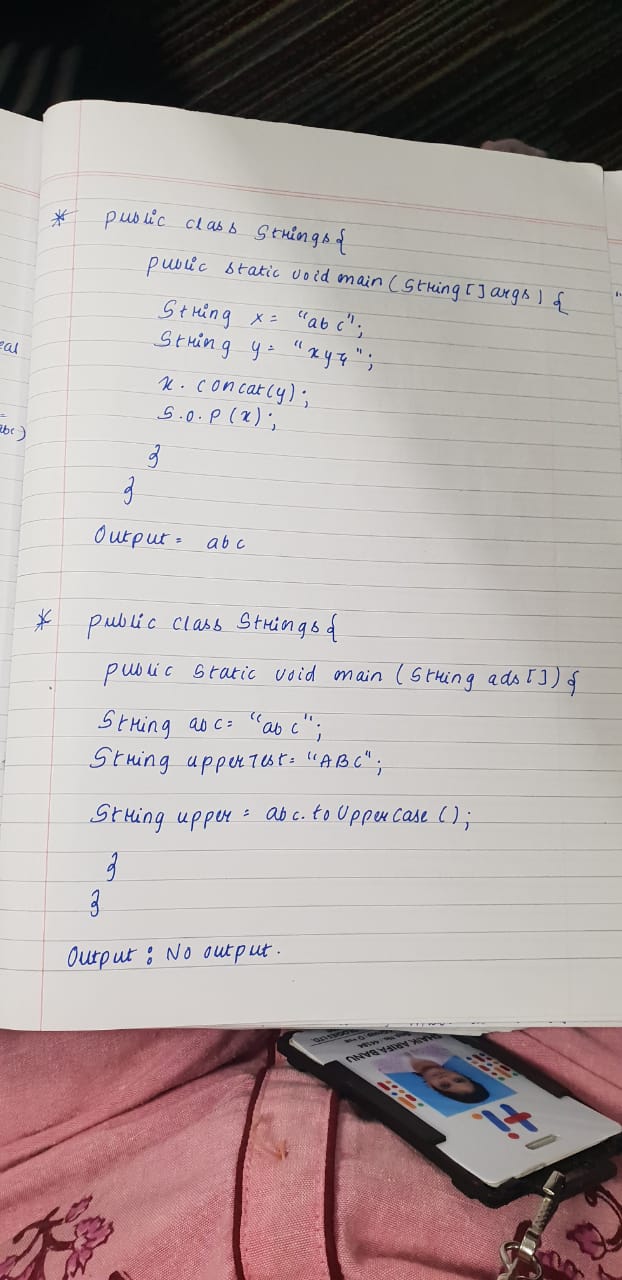 * public class Strings{
public static void main (String [] args) {
String x = "abc";
String y = "xyz";
x. concat(y);
S.O.P (x);
}
}
Output = abc
* public class Strings{
public static void main (String ads []) {
String abc = "abc";
String upperTest = "ABC";
String upper = abc. to UpperCase ();
}
}
Output : No output.
eal
abc)
SHAIK ARIFA BANU